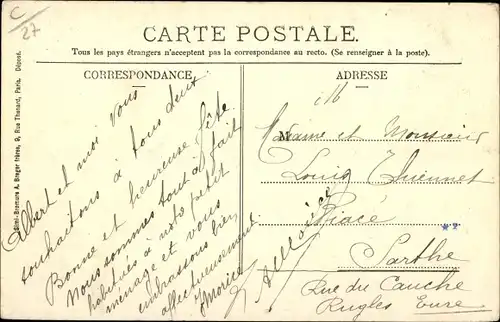 C
27
CARTE POSTALE.
Tous les pays étrangers n'acceptent pas la correspondance au recto. (Se renseigner à la poste).
CORRESPONDANCE
ADRESSE
A. Breger frères, 9, Rue Thénard, Paris. Déposé.
Albert et moi vous
souhaitons à tous deux
Bonne et heureuse fête
Nous sommes tout à fait
habitués à notre petit
ménage et vous
embrassons bien
affectueusement
Madame et Monsieur
Louis
Piacé
Sarthe
Rue du Cauche
Rugles Eure